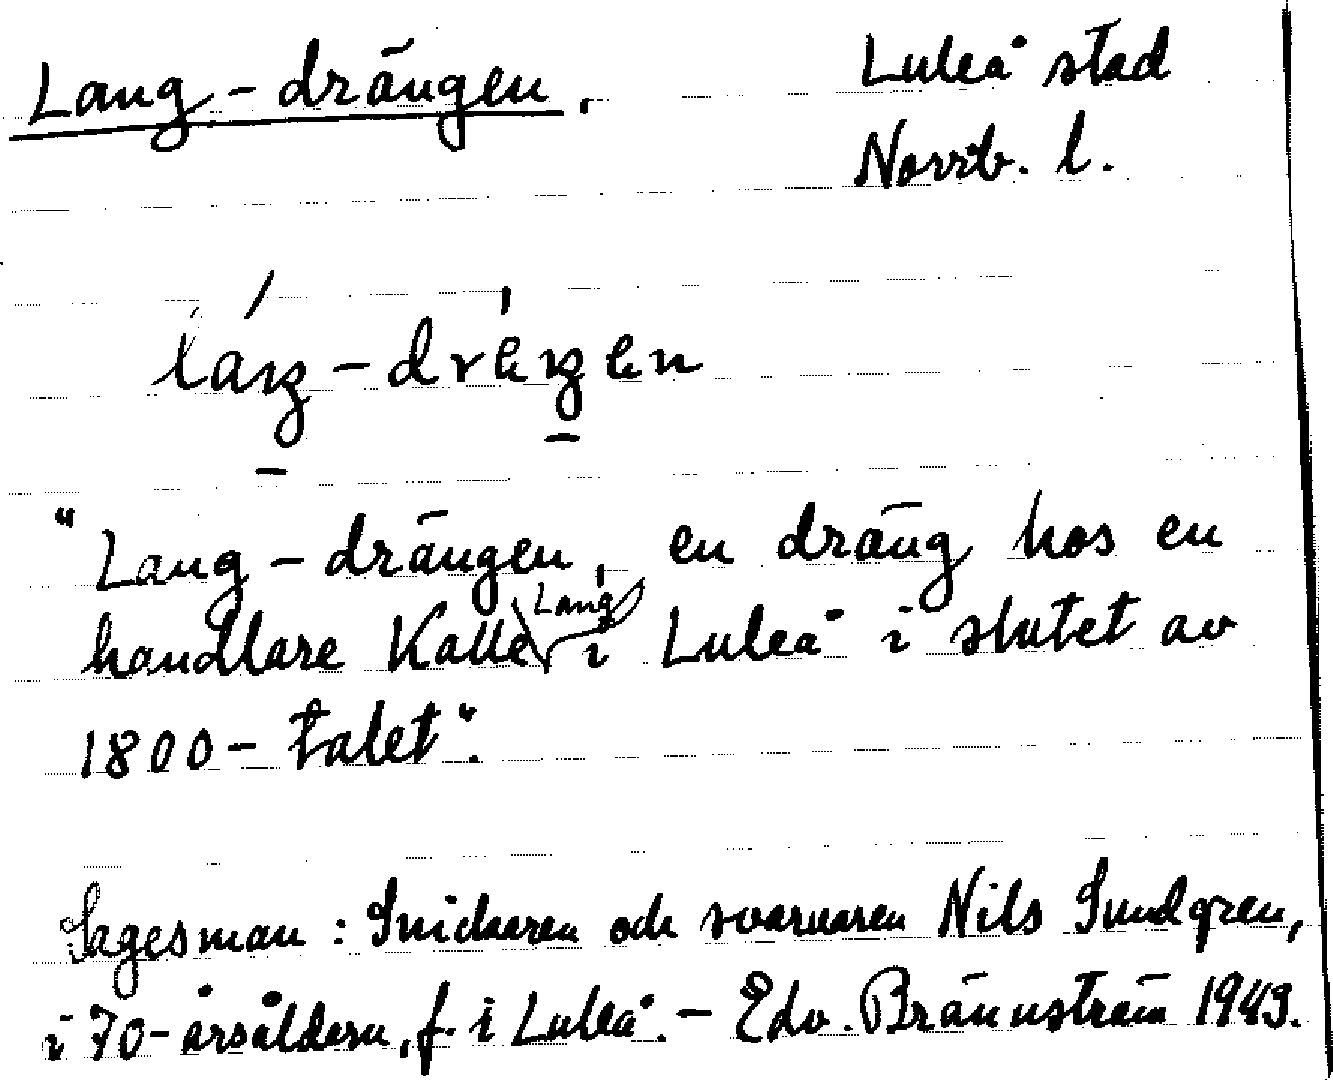 Lang-drängen.
Luleå stad
Norrb. l.
láŋ-drèŋen
"Lang-drängen, en dräng hos en
handlare Kalle Lang i Luleå i slutet av
1800-talet".
Sagesman: Snickaren och svarvaren Nils Sundgren,
i 70-årsåldern, f. i Luleå. - Edv. Brännström 1943.